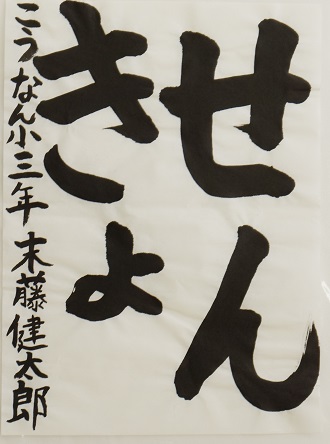 せん
きょ
こうなん小三年末藤健太郎